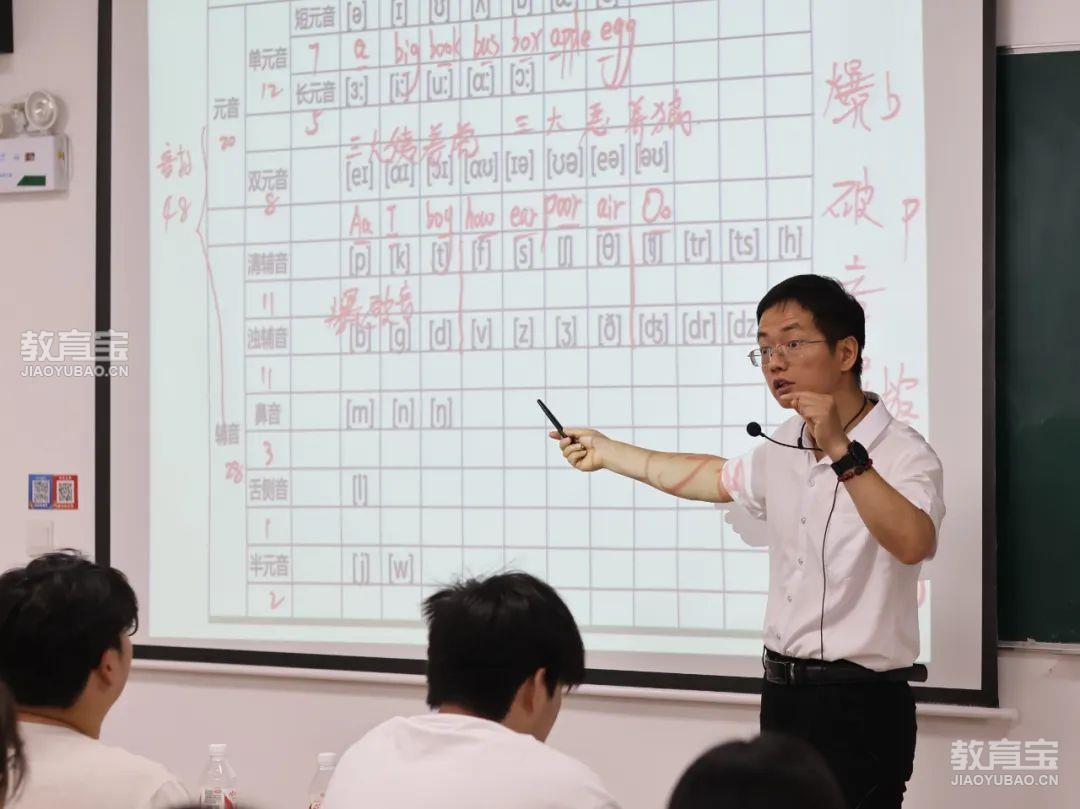 短元音 [ə] [ɪ] [ʊ] [ʌ] [ɒ] [æ] [e]
单元音 7 a big book bus box apple egg
12 长元音 [ɜ:] [i:] [u:] [ɑ:] [ɔ:]
元音 5
20 三大 善 三大恶
双元音 [eɪ] [aɪ] [ɔɪ] [aʊ] [ɪə] [ʊə] [eə] [əʊ]
8 Aa I boy how ear poor air Oo
音标
48
清辅音 [p] [k] [t] [f] [s] [ʃ] [θ] [tʃ] [tr] [ts] [h]
11 爆破音
浊辅音 [b] [g] [d] [v] [z] [ʒ] [ð] [dʒ] [dr] [dz
11
鼻音 [m] [n] [ŋ]
辅音 3
28
舌侧音 [l]
1
半元音 [j] [w]
2
爆 b
破 p
音
教育宝
JIAOYUBAO.CN
教育宝
JIAOYUBAO.CN